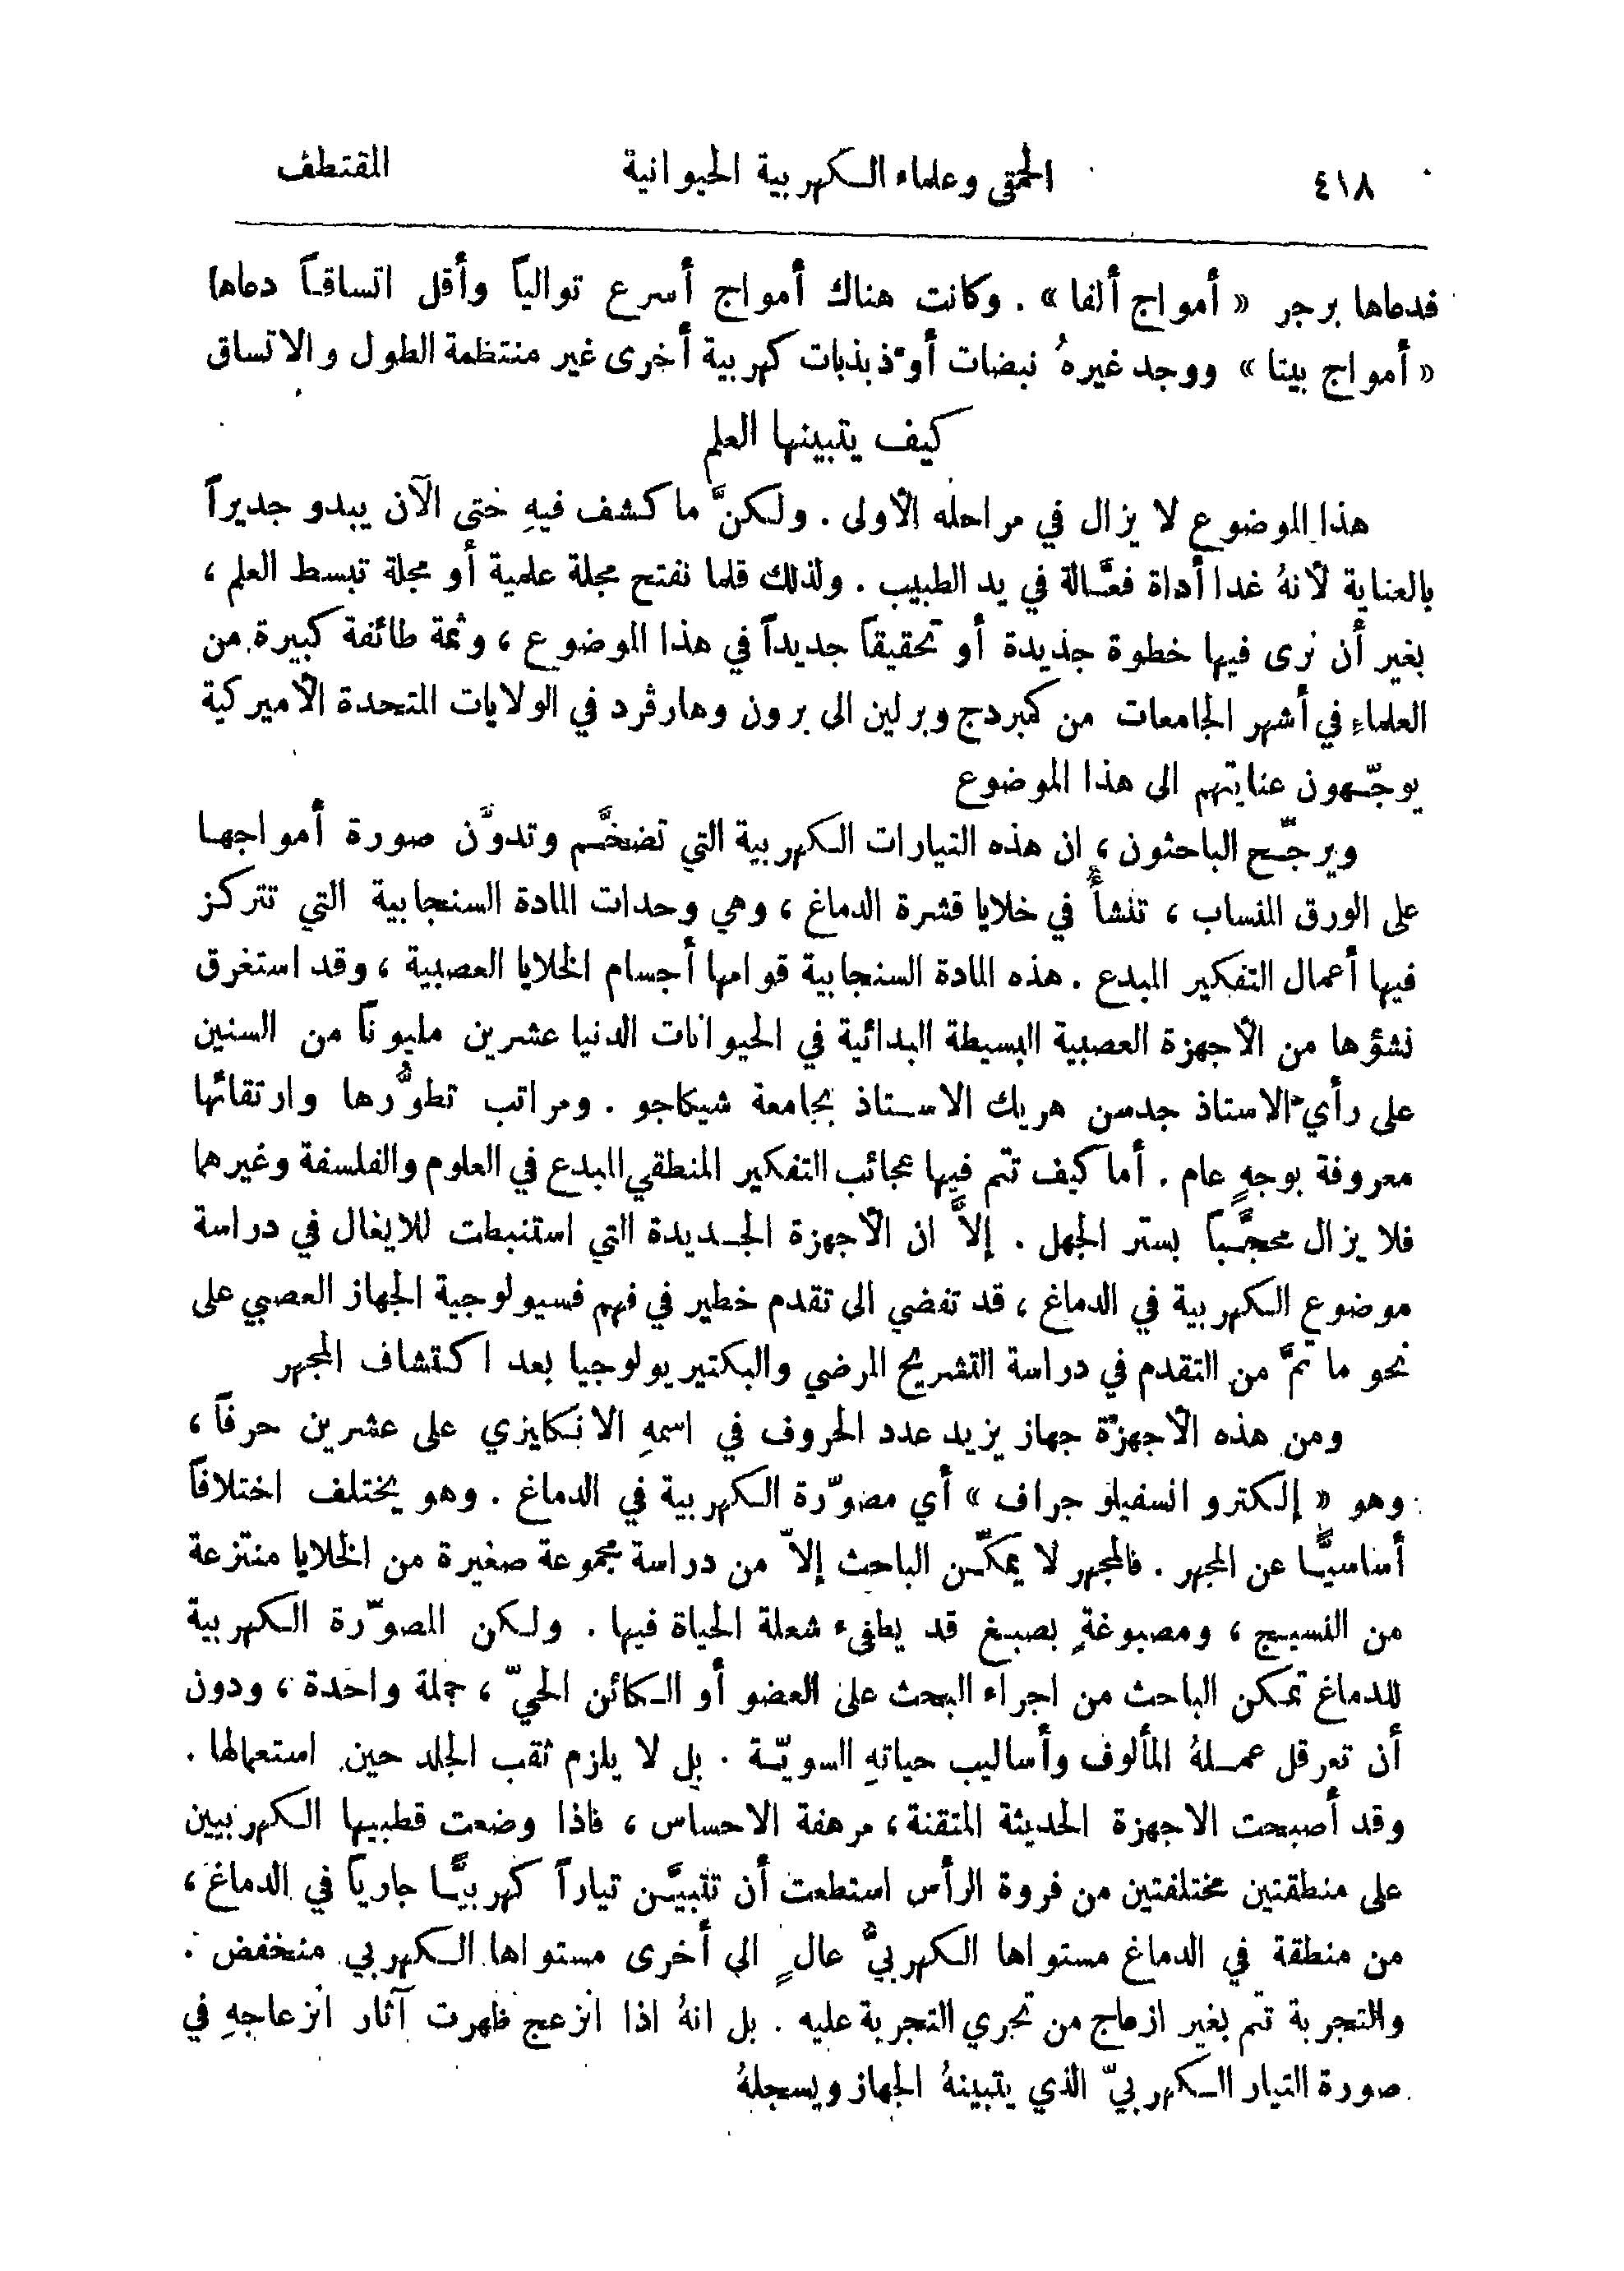 ٤١٨ الحمقى وعلماء الكهربية الحيوانية المقتطف
فدعاها برجر « أمواج ألفا » . وكانت هناك أمواج أسرع توالياً وأقل اتساقاً دعاها
« أمواج بيتا » ووجد غيرهُ نبضات أو ذبذبات كهربية أخرى غير منتظمة الطول والاتساق
كيف يتبينها العلم
هذا الموضوع لا يزال في مراحله الأولى . ولكنَّ ما كشف فيهِ حتى الآن يبدو جديراً
بالعناية لأنهُ غدا أداة فعَّالة في يد الطبيب . ولذلك قلما نفتح مجلة علمية أو مجلة تبسط العلم ،
بغير أن نرى فيها خطوة جديدة أو تحقيقاً جديداً في هذا الموضوع ، وثمة طائفة كبيرة من
العلماءِ في أشهر الجامعات من كمبردج وبرلين الى برون وهارڤرد في الولايات المتحدة الأميركية
يوجّهون عنايتهم الى هذا الموضوع
ويرجّح الباحثون ، ان هذه التيارات الكهربية التي تضخَّم وتدوَّن صورة أمواجها
على الورق المنساب ، تنشأُ في خلايا قشرة الدماغ ، وهي وحدات المادة السنجابية التي تتركز
فيها أعمال التفكير المبدع . هذه المادة السنجابية قوامها أجسام الخلايا العصبية ، وقد استغرق
نشؤها من الأجهزة العصبية البسيطة البدائية في الحيوانات الدنيا عشرين مليوناً من السنين
على رأي الاستاذ جدسن هريك الاستاذ بجامعة شيكاجو . ومراتب تطوُّرها وارتقائها
معروفة بوجهٍ عام . أما كيف تتم فيها عجائب التفكير المنطقي المبدع في العلوم والفلسفة وغيرهما
فلا يزال محجَّباً بستر الجهل . إلاَّ ان الأجهزة الجديدة التي استنبطت للايغال في دراسة
موضوع الكهربية في الدماغ ، قد تفضي الى تقدم خطير في فهم فسيولوجية الجهاز العصبي على
نحو ما تمَّ من التقدم في دراسة التشريح المرضي والبكتيريولوجيا بعد اكتشاف المجهر
ومن هذه الأجهزة جهاز يزيد عدد الحروف في اسمهِ الانكليزي على عشرين حرفاً ،
وهو « إلكترو انسفيلو جراف » أي مصوّرة الكهربية في الدماغ . وهو يختلف اختلافاً
أساسيًّا عن المجهر . فالمجهر لا يمكّن الباحث إلاّ من دراسة مجموعة صغيرة من الخلايا منتزعة
من النسيج ، ومصبوغةٍ بصبغ قد يطفىء شعلة الحياة فيها . ولكن المصوّرة الكهربية
للدماغ تمكن الباحث من اجراء البحث على العضو أو الكائن الحيّ ، جملة واحدة ، ودون
أن تعرقل عملهُ المألوف وأساليب حياتهِ السويّة . بل لا يلزم ثقب الجلد حين استعمالها .
وقد أصبحت الاجهزة الحديثة المتقنة ، مرهفة الاحساس ، فاذا وضعت قطبيها الكهربيين
على منطقتين مختلفتين من فروة الرأس استطعت أن تتبيَّن تياراً كهربيًّا جارياً في الدماغ ،
من منطقة في الدماغ مستواها الكهربيُّ عالٍ الى أخرى مستواها الكهربي منخفض .
والتجربة تتم بغير ازعاج من تجري التجربة عليه . بل انهُ اذا انزعج ظهرت آثار انزعاجهِ في
صورة التيار الكهربيّ الذي يتبينهُ الجهاز ويسجلهُ